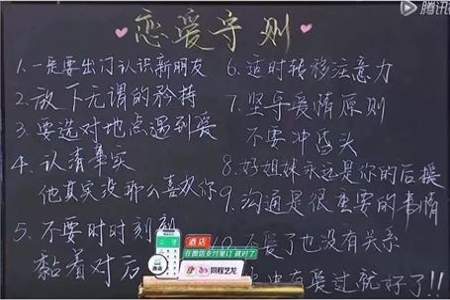 腾讯
恋爱守则
1.一定要出门认识新朋友
2.放下无谓的矜持
3.要选对地点遇到爱
4.认清事实
他其实没那么喜欢你
5.不要时时刻刻
黏着对方
6.适时转移注意力
7.坚守爱情原则
不要冲昏头
8.好姐妹永远是你的后援
9.沟通是很重要的事情
爱了也没有关系
有爱过就好了!!
酒店
同程艺龙